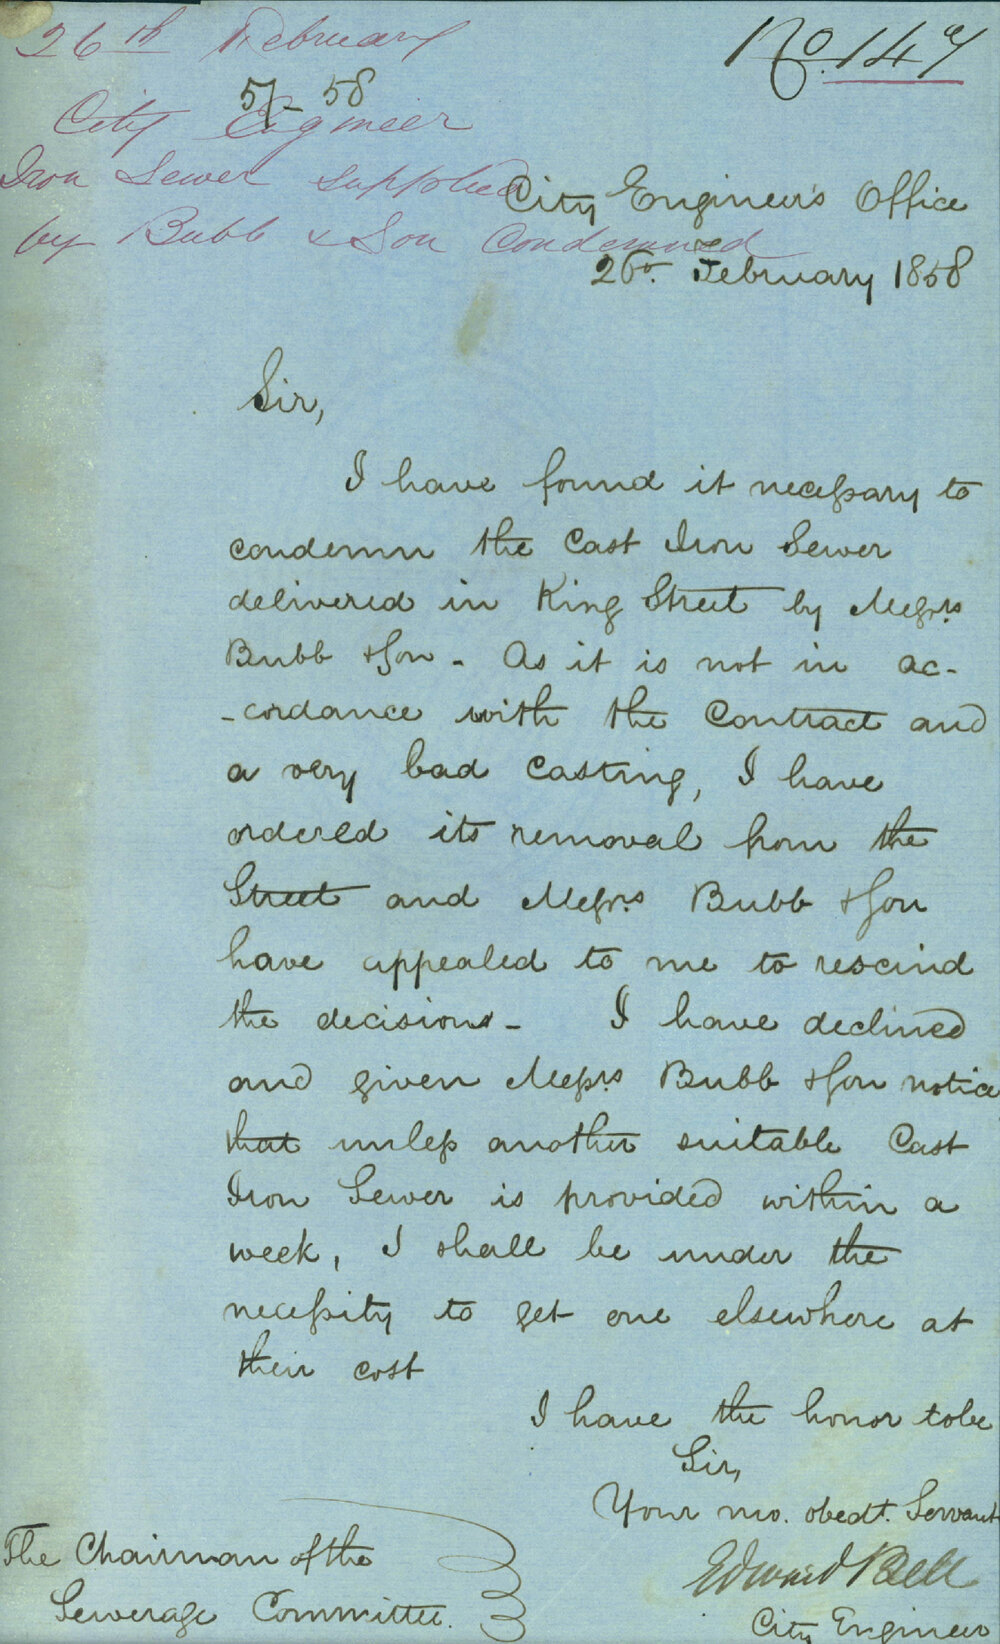 26th February
No. 147
57-58
City Engineer
Iron Sewer supplied
by Bubb & Son Condemned
City Engineer's Office
26th February 1858
Sir,
I have found it necessary to
condemn the Cast Iron Sewer
delivered in King Street by Messrs
Bubb & Son - As it is not in ac-
-cordance with the Contract and
a very bad casting, I have
ordered its removal from the
Street and Messrs Bubb & Son
have appealed to me to rescind
the decision - I have declined
and given Messrs Bubb & Son notice
that unless another suitable Cast
Iron Sewer is provided within a
week, I shall be under the
necessity to get one elsewhere at
their cost
I have the honor to be
Sir,
Your mo. obedt. Servant
Edward Bell
City Engineer
The Chairman of the
Sewerage Committee.